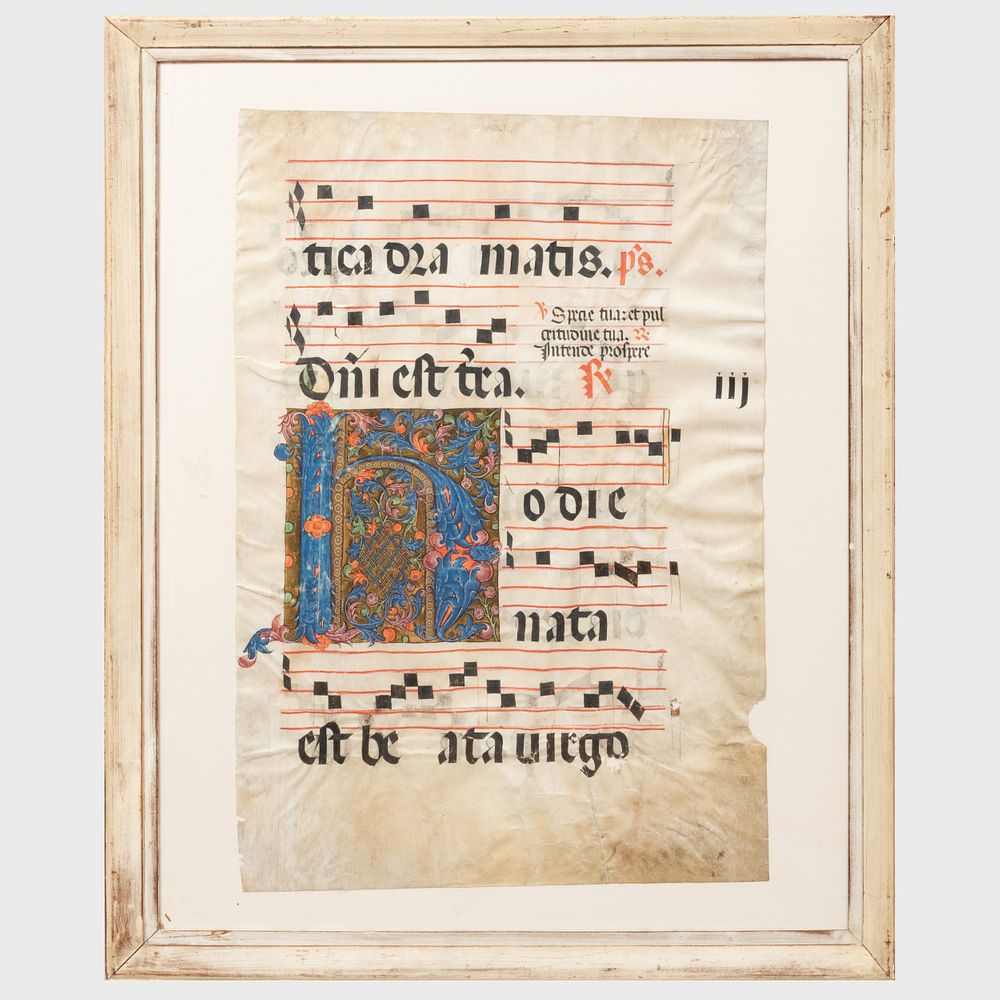 tica dra matis. ps.
℟ Specie tua: et pul
critudine tua. ℣
Intende prospere
Dñi est t̃ra. ℟ iij
hodie
nata
est be ata uirgo